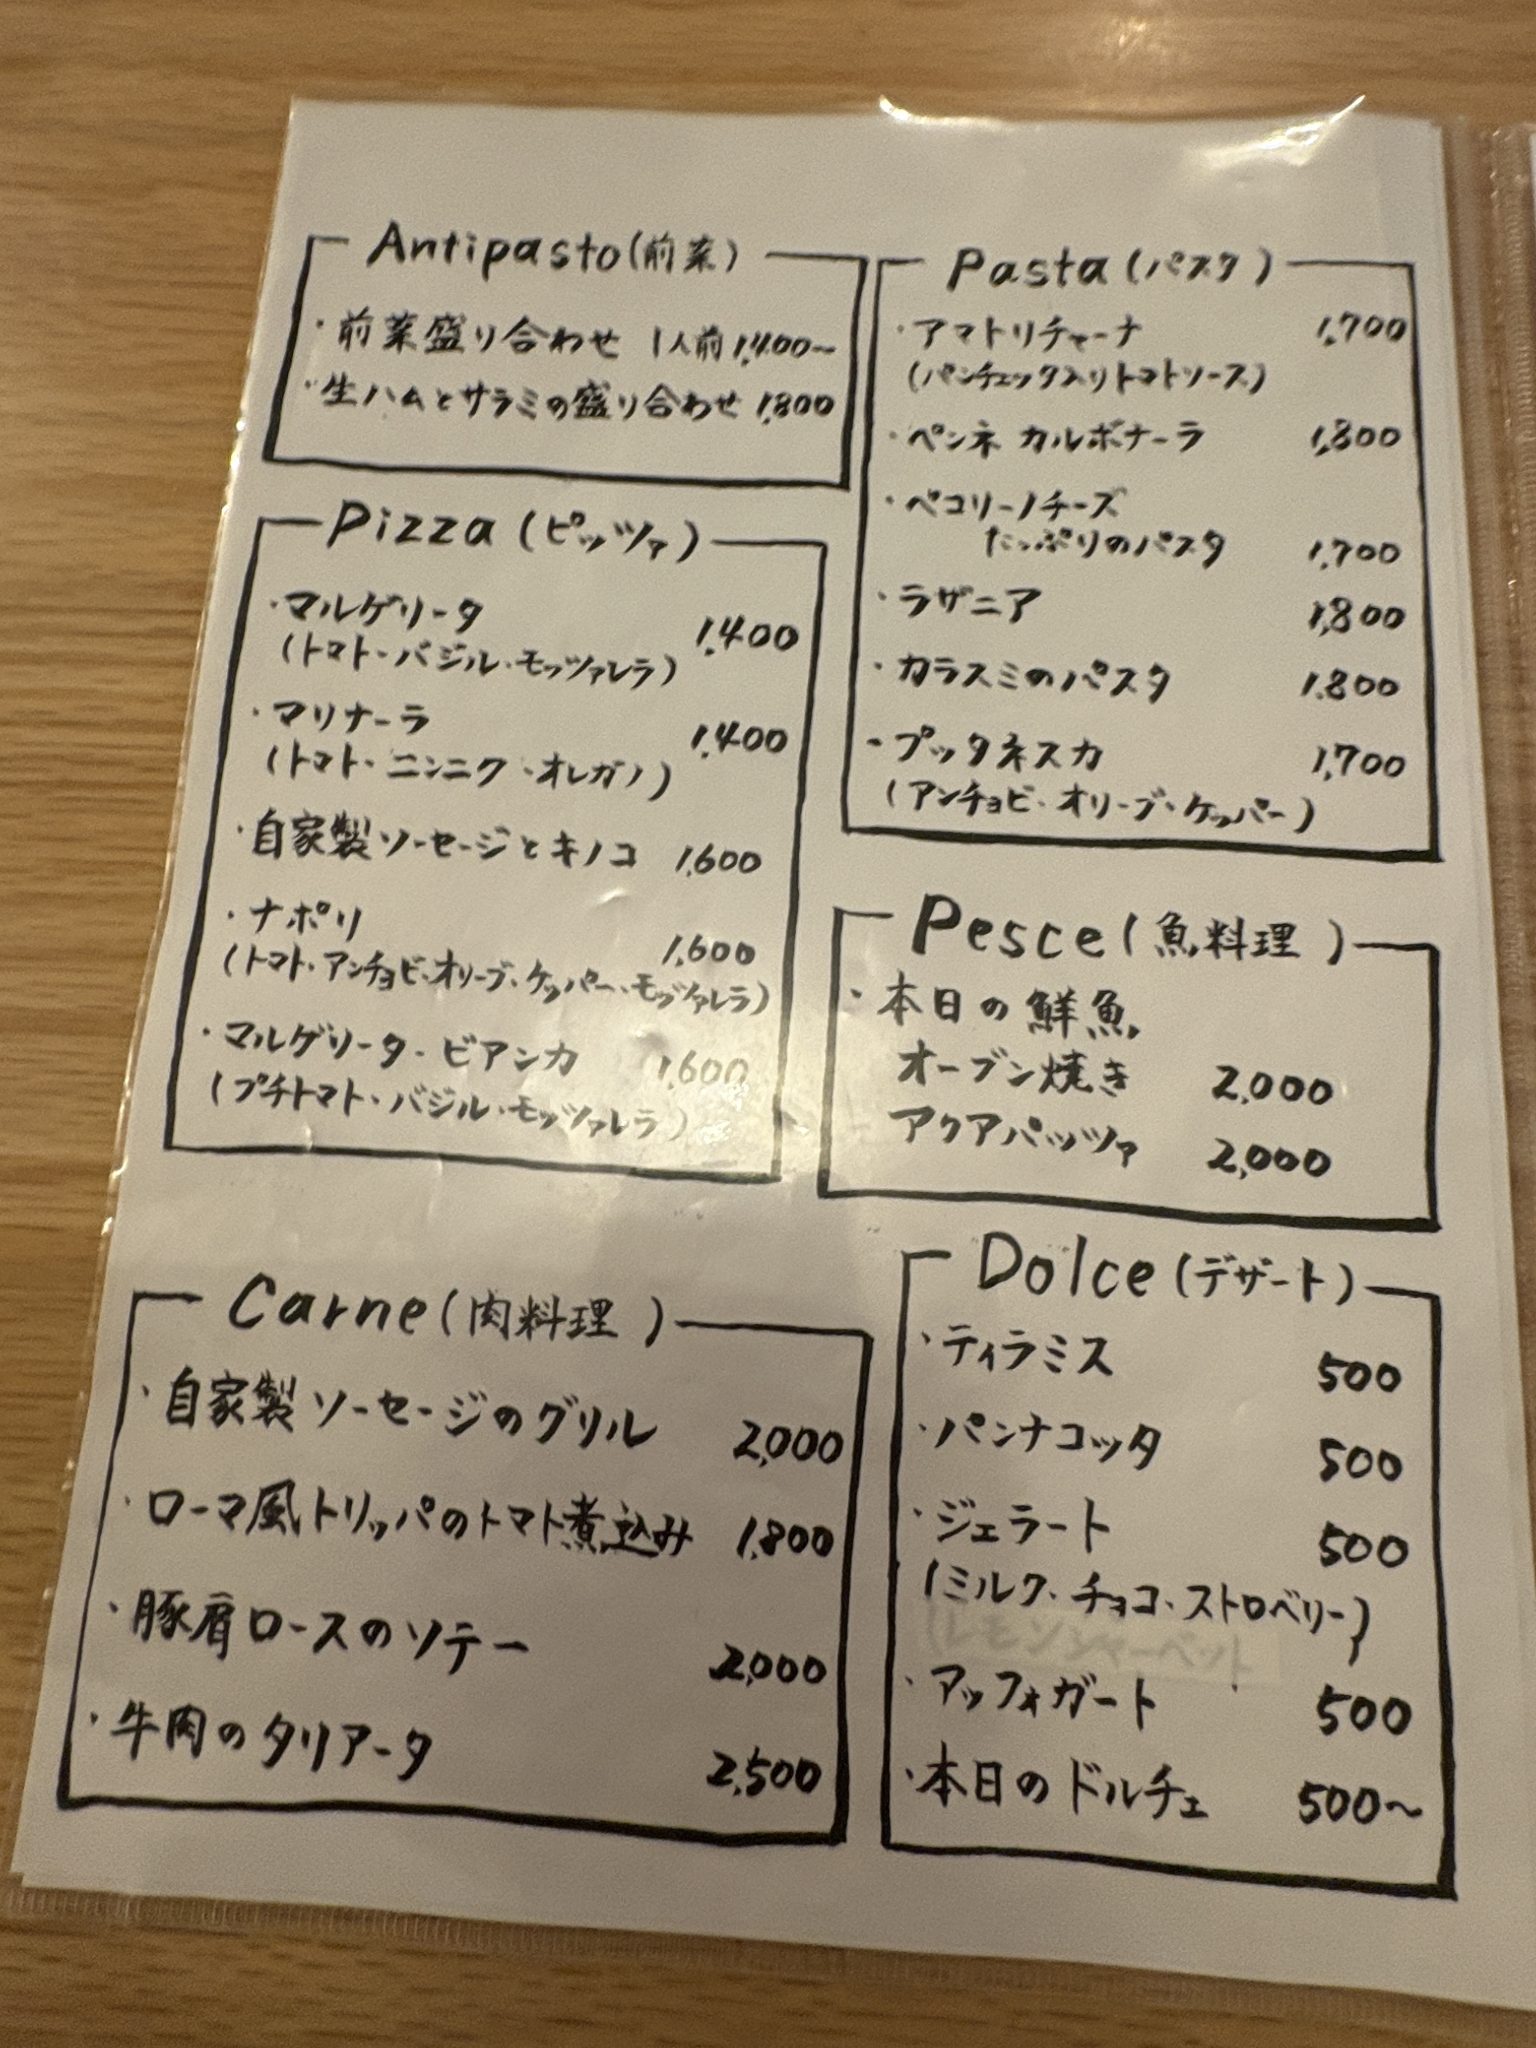 Antipasto(前菜)
・前菜盛り合わせ 1人前 1,400〜
・生ハムとサラミの盛り合わせ 1,800
Pizza(ピッツァ)
・マルゲリータ 1,400
(トマト・バジル・モッツァレラ)
・マリナーラ 1,400
(トマト・ニンニク・オレガノ)
・自家製ソーセージとキノコ 1,600
・ナポリ 1,600
(トマト・アンチョビ・オリーブ・ケッパー・モッツァレラ)
・マルゲリータ・ビアンカ 1,600
(プチトマト・バジル・モッツァレラ)
Carne(肉料理)
・自家製ソーセージのグリル 2,000
・ローマ風トリッパのトマト煮込み 1,800
・豚肩ロースのソテー 2,000
・牛肉のタリアータ 2,500
Pasta(パスタ)
・アマトリチャーナ 1,700
(パンチェッタ入りトマトソース)
・ペンネ カルボナーラ 1,800
・ペコリーノチーズ
たっぷりのパスタ 1,700
・ラザニア 1,800
・カラスミのパスタ 1,800
・プッタネスカ 1,700
(アンチョビ・オリーブ・ケッパー)
Pesce(魚料理)
・本日の鮮魚
オーブン焼き 2,000
アクアパッツァ 2,000
Dolce(デザート)
・ティラミス 500
・パンナコッタ 500
・ジェラート 500
(ミルク・チョコ・ストロベリー)
(レモンシャーベット
・アッフォガート 500
・本日のドルチェ 500〜